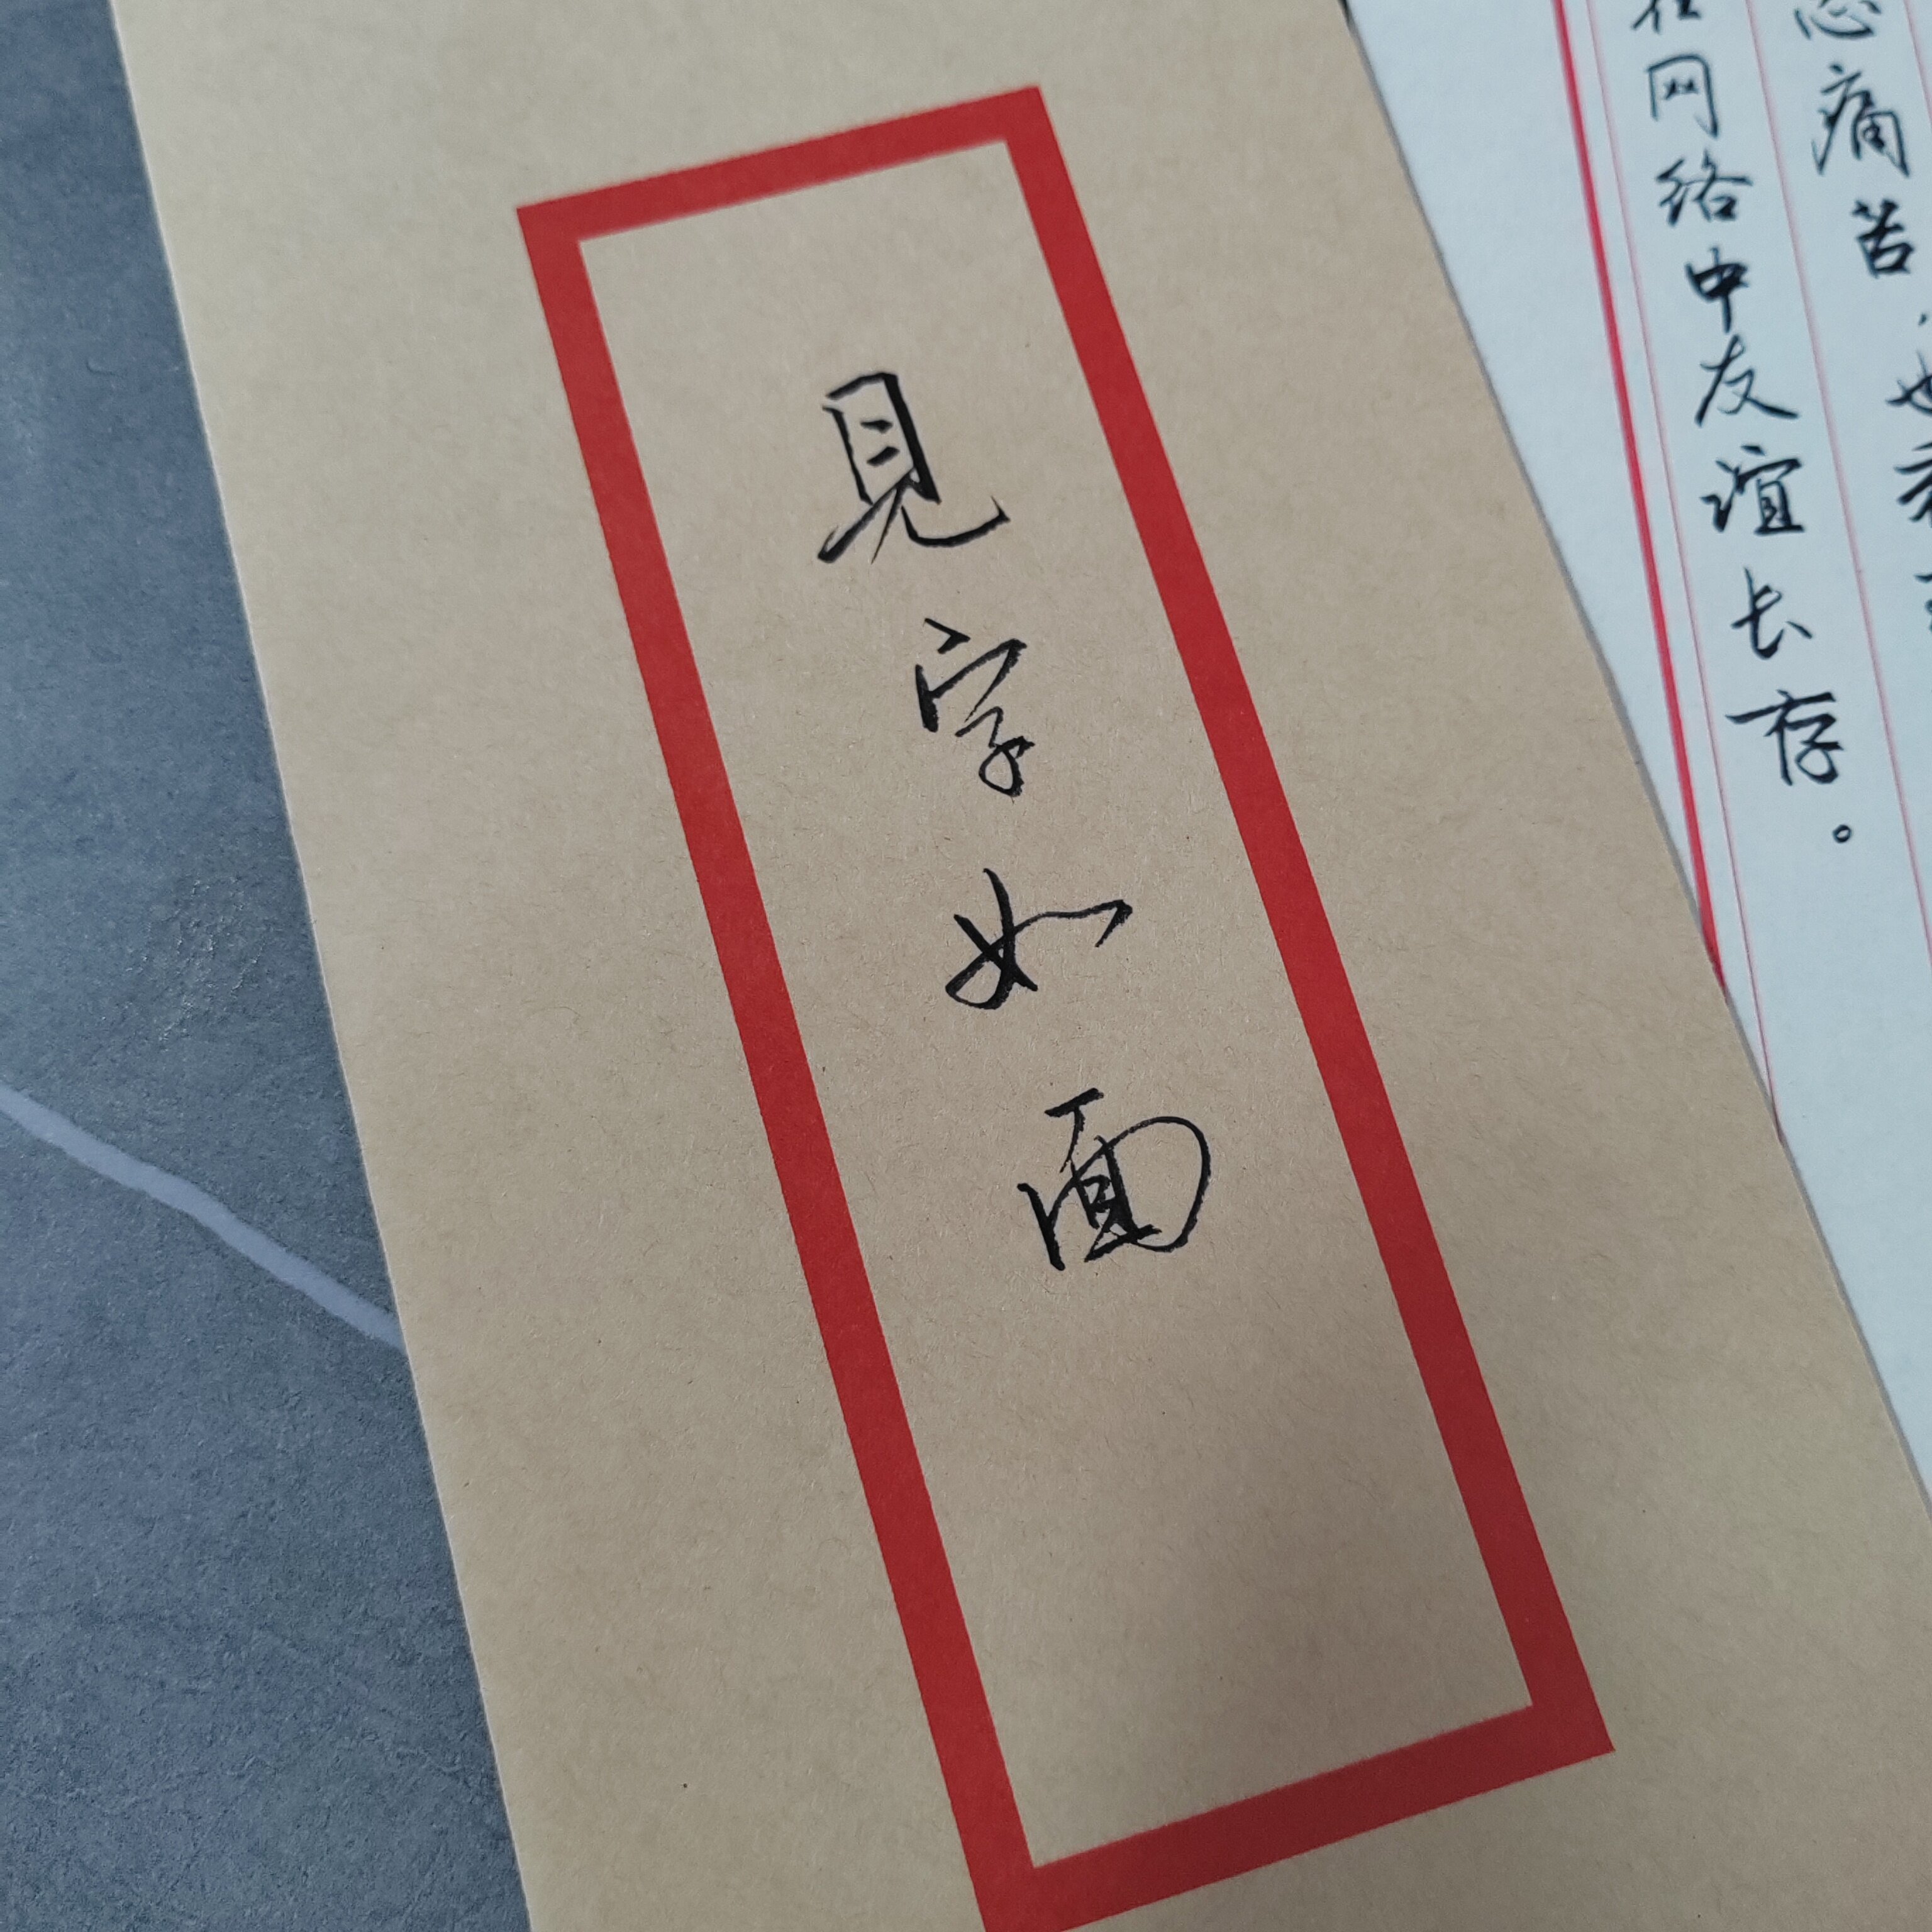 見字如面
痛苦
网络中友谊长存。